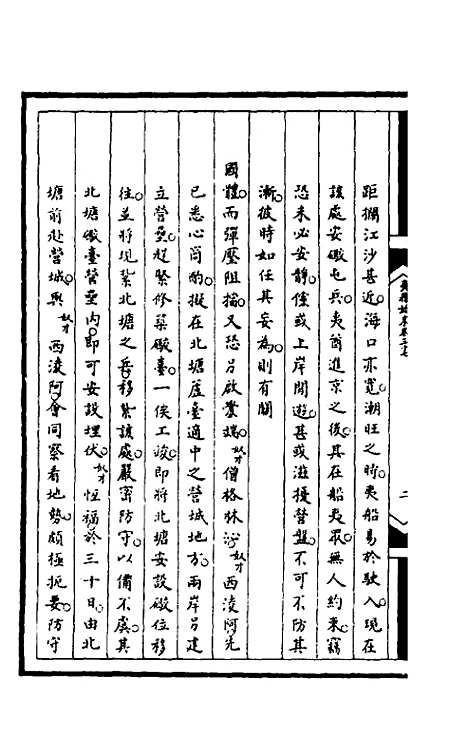 距攔江沙甚近。海口亦寬。潮旺之時。夷船易於駛入。現在
該處安礮屯兵。夷酋進京之後。其在船夷眾。無人約束。竊
恐未必安靜。儻或上岸閒遊。甚或滋擾營盤。不可不防其
漸。彼時如任其妄為。則有關
國體。而彈壓阻攔。又恐另啟釁端。奴才僧格林沁。奴才西淩阿。先
已悉心商酌。擬在北塘蘆臺適中之營城地方。兩岸另建
立營壘。趕緊修築礮臺。一俟工竣。即將北塘安設礮位移
往。並將現紮北塘之兵。移紮該處。嚴密防守。以備不虞。其
北塘礮臺營壘內。即可安設埋伏。奴才恆福於三十日。由北
塘前赴營城。與奴才西淩阿會同察看地勢。頗極扼要。防守
二